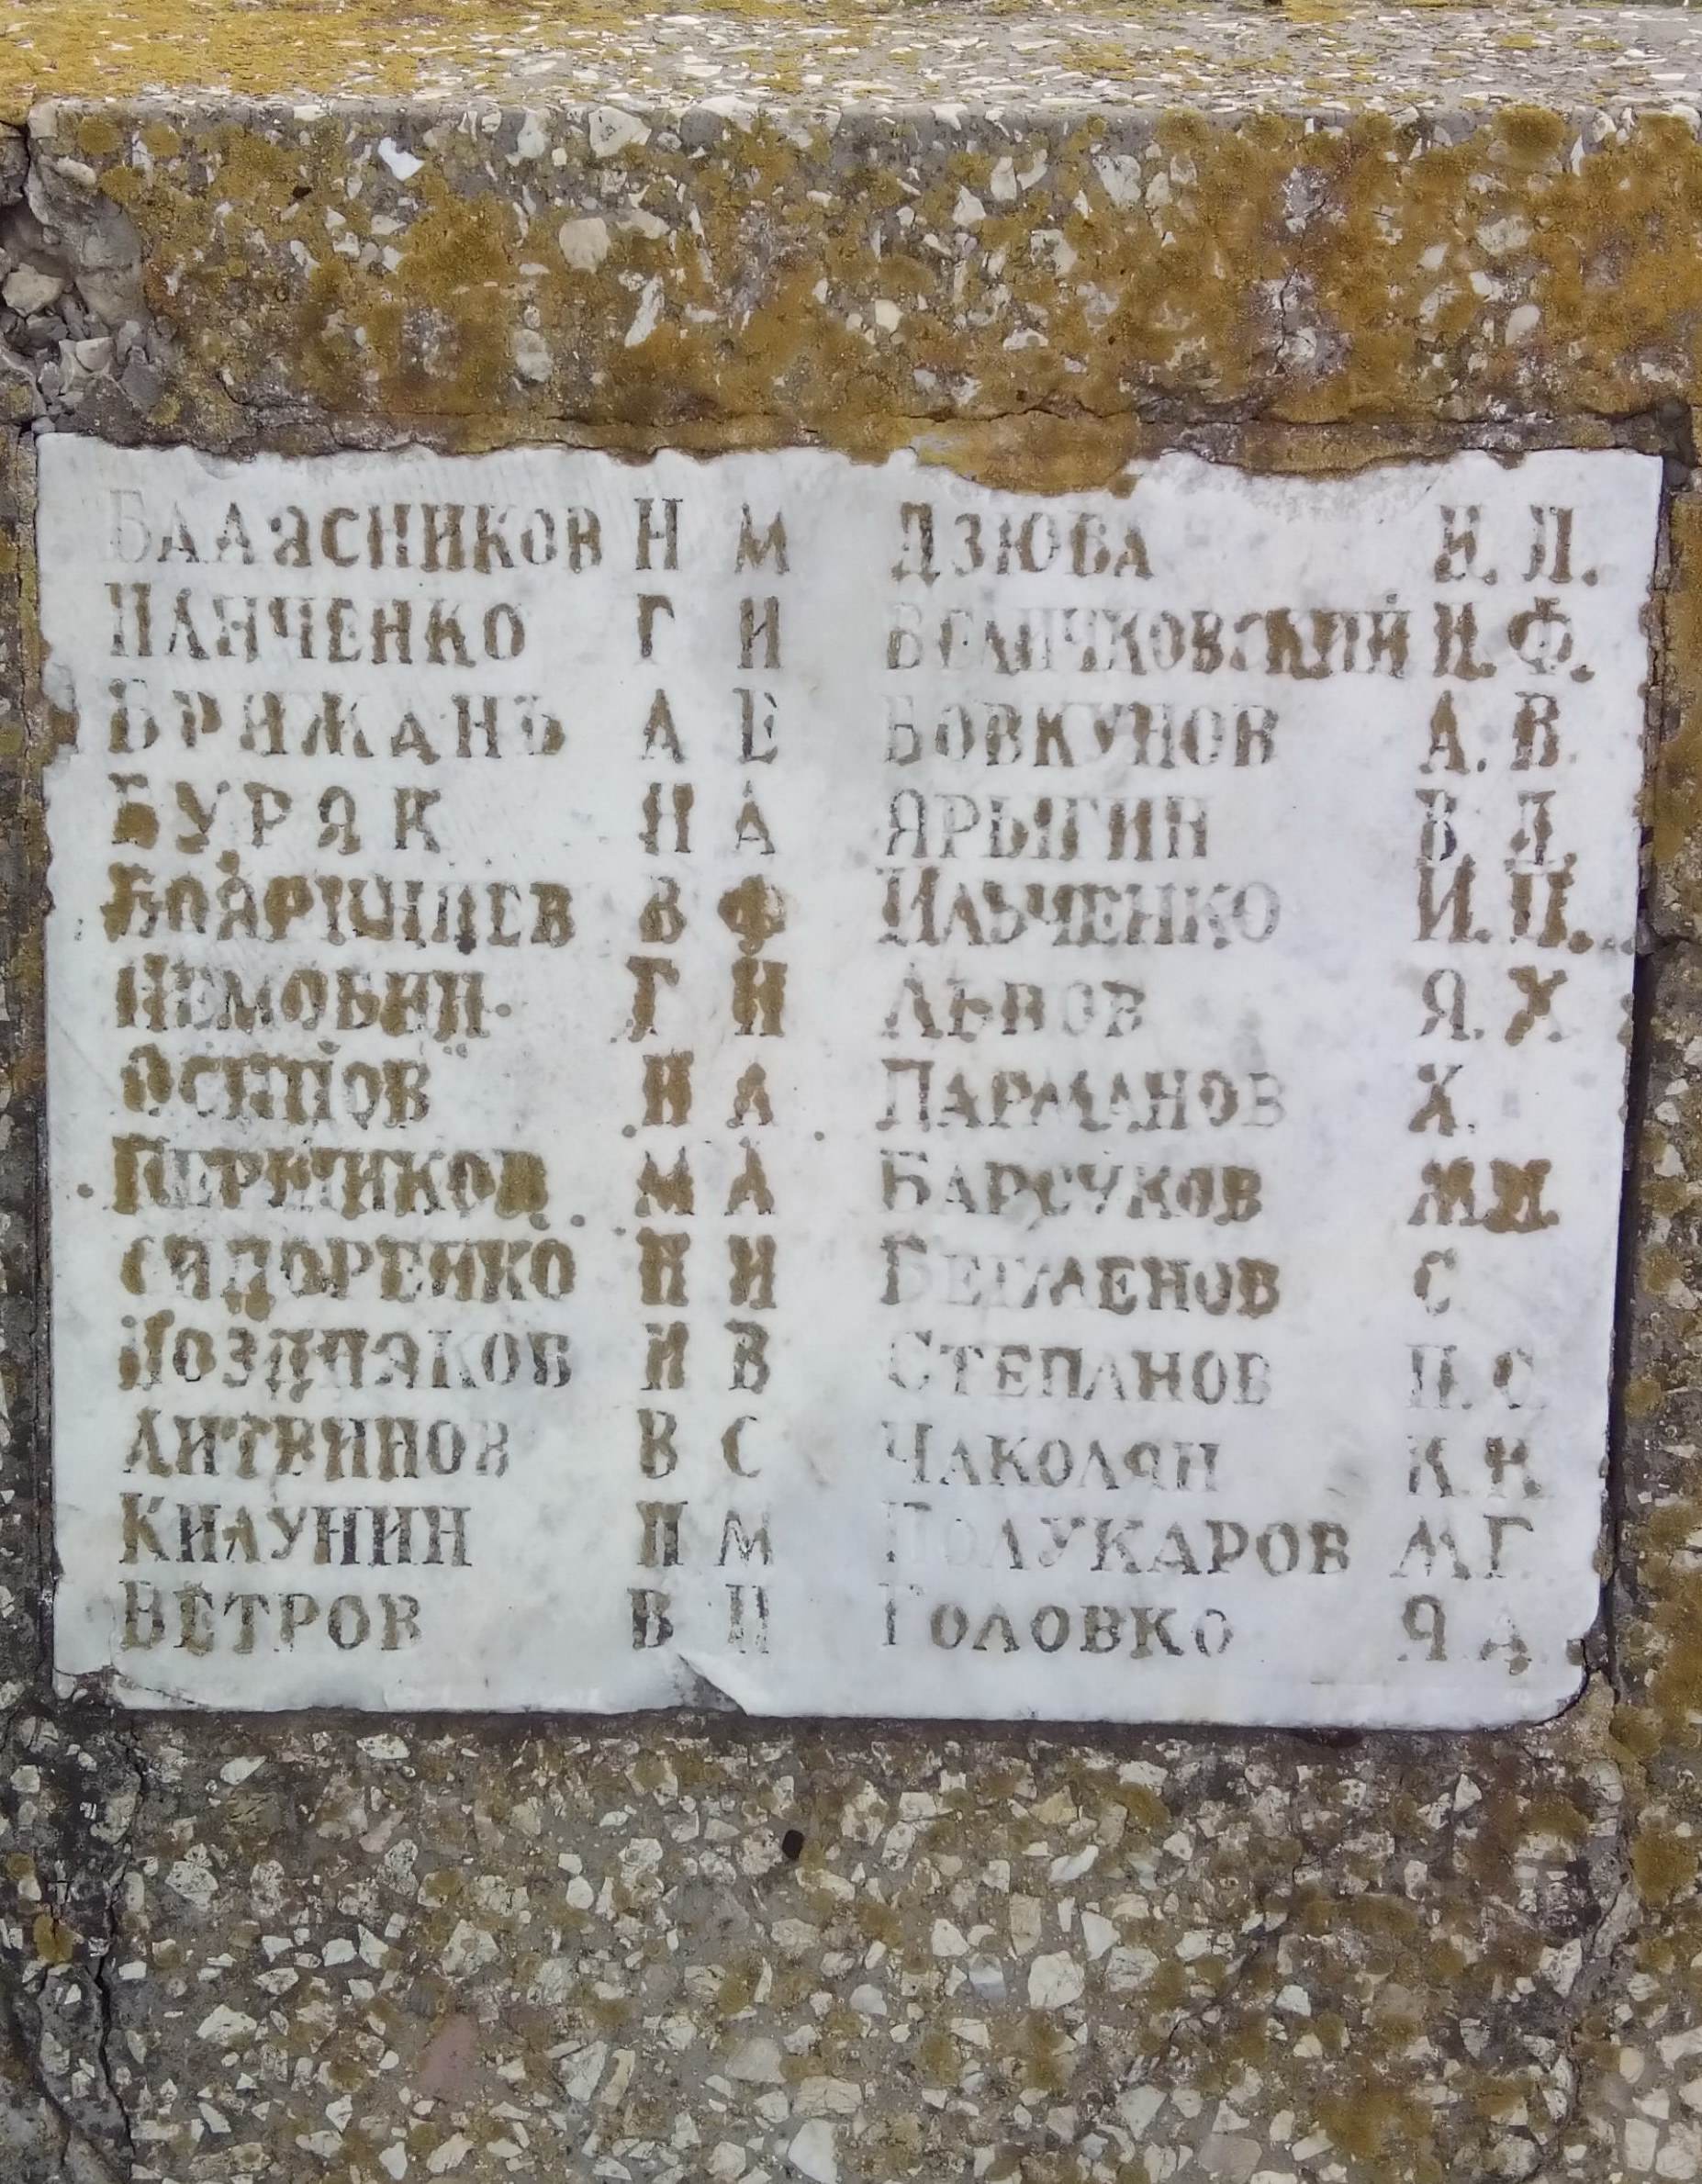 БАЛЯСНИКОВ Н М
ПАНЧЕНКО Г И
БРЯЖАНЬ А Е
БУРЯК Н А
В Ф
Г И
ОСИПОВ Н А
М А
СИДОРЕНКО И
ПОЗДНЯКОВ И В
ЛИТВИНОВ В С
КИЛУНИН П М
ВЕТРОВ В П
ДЗЮБА Л.
ВЕЛИЧКОВСКИЙ Ф.
БОВКУНОВ А. В.
ЯРЫГИН В. Д.
ИЛЬЧЕНКО И. П.
ЛЬВОВ Я. Х.
ПАРМАНОВ Х.
БАРСУКОВ М. И.
С
СТЕПАНОВ П. С
ЧАКОЛЯН К. К
ПОЛУКАРОВ М. Г.
ГОЛОВКО Я А